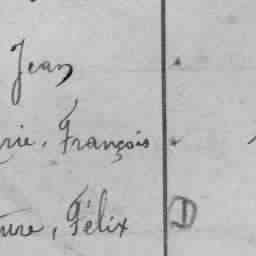 Jean
rie, François
ure, Félix D